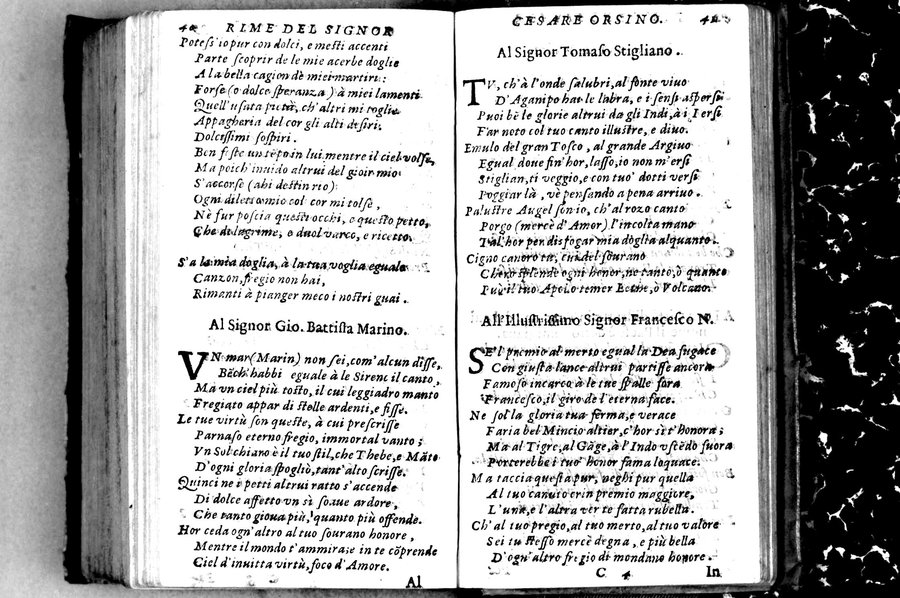 40 RIME DEL SIGNOR
Potess'io pur con dolci, e mesti accenti
Parte scoprir de le mie acerbe doglie
A la bella cagion dè miei martiri:
Forse (o dolce speranza) à miei lamenti
Quell'usata pietà, ch'altri mi toglie
Appagheria del cor gli alti desiri.
Dolcissimi sospiri.
Ben foste un tẽpo in lui mentre il ciel volse,
Ma poich'inuido altrui del gioir mio
S'accorse (ahi destin rio)
Ogni diletto mio col cor mi tolse,
Nè fur poscia questi occhi, e questo petto,
Che di lagrime, e duol varco, e ricetto.
S'a la mia doglia, à la tua voglia eguale
Canzon, fregio non hai,
Rimanti à pianger meco i nostri guai.
Al Signor Gio. Battista Marino.
VN mar (Marin) non sei, com'alcun disse,
Bẽch'habbi eguale à le Sirene il canto,
Ma vn ciel più tosto, il cui leggiadro manto
Fregiato appar di stelle ardenti, e fisse.
Le tue virtù son queste, à cui prescrisse
Parnaso eterno fregio, immortal vanto;
Vn Sol chiano è il tuo stil, che Thebe, e Mãto
D'ogni gloria spogliò, tant'alto scrisse.
Quinci ne i petti altrui ratto s'accende
Di dolce affetto vn sì soaue ardore,
Che tanto gioua più, quanto più offende.
Hor ceda ogn'altro al tuo sourano honore,
Mentre il mondo t'ammira; e in te cõprende
Ciel d'inuitta virtù, foco d'Amore.
Al
CESARE ORSINO. 41
Al Signor Tomaso Stigliano.
TV, ch'à l'onde salubri, al fonte viuo
D'Aganipo hai le labra, e i sensi aspersi
Puoi bẽ le glorie altrui da gli Indi, à i Persi
Far noto col tuo canto illustre, e diuo.
Emulo del gran Tosco, al grande Argiuo
Egual doue fin'hor, lasso, io non m'ersi
Stiglian, ti veggio, e con tuo' dotti versi
Poggiar là, vè pensando a pena arriuo.
Palustre Augel son io, ch'al rozo canto
Porgo (mercè d'Amor) l'incolta mano
Tal'hor per disfogar mia doglia alquanto.
Cigno canoro tu, cui del sourano
Choro splende ogni honor, ne tanto, ò quanto
Può il tuo Apolo temer ò Volcano.
All'Illustrissimo Signor Francesco N.
SE'l premio al merto egual la Dea fugace
Con giusta lance altrui partisse ancora
Famoso incarco à le tue spalle fora
Francesco, il giro de l'eterna face.
Ne sol la gloria tua ferma, e verace
Faria bel Mincio altier, c'hor sè t'honora;
Ma al Tigre, al Gãge, à l'Indo vscẽdo fuora
Porterebbe i tuo' honor fama loquace.
Ma taccia questa pur, neghi pur quella
Al tuo canuto crin premio maggiore,
L'una, e l'altra ver te fatta rubella.
Ch'al tuo pregio, al tuo merto, al tuo valore
Sei tu stesso mercè degna, e più bella
D'ogn'altro fregio di mondano honore.
C 4 In